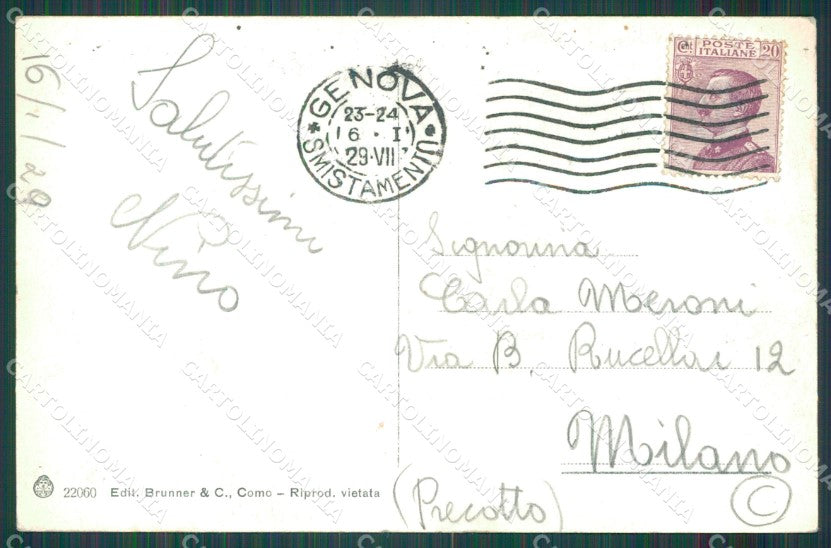 16/1/29
Salutissimi
Nino
GENOVA
23-24
16 · I
29·VII
* SMISTAMENTO *
Cent. POSTE ITALIANE 20
Signorina
Carla Meroni
Via B. Rucellai 12
Milano
(Precotto)
C
22060 Edit. Brunner & C., Como – Riprod. vietata
CARTOLINOMANIA